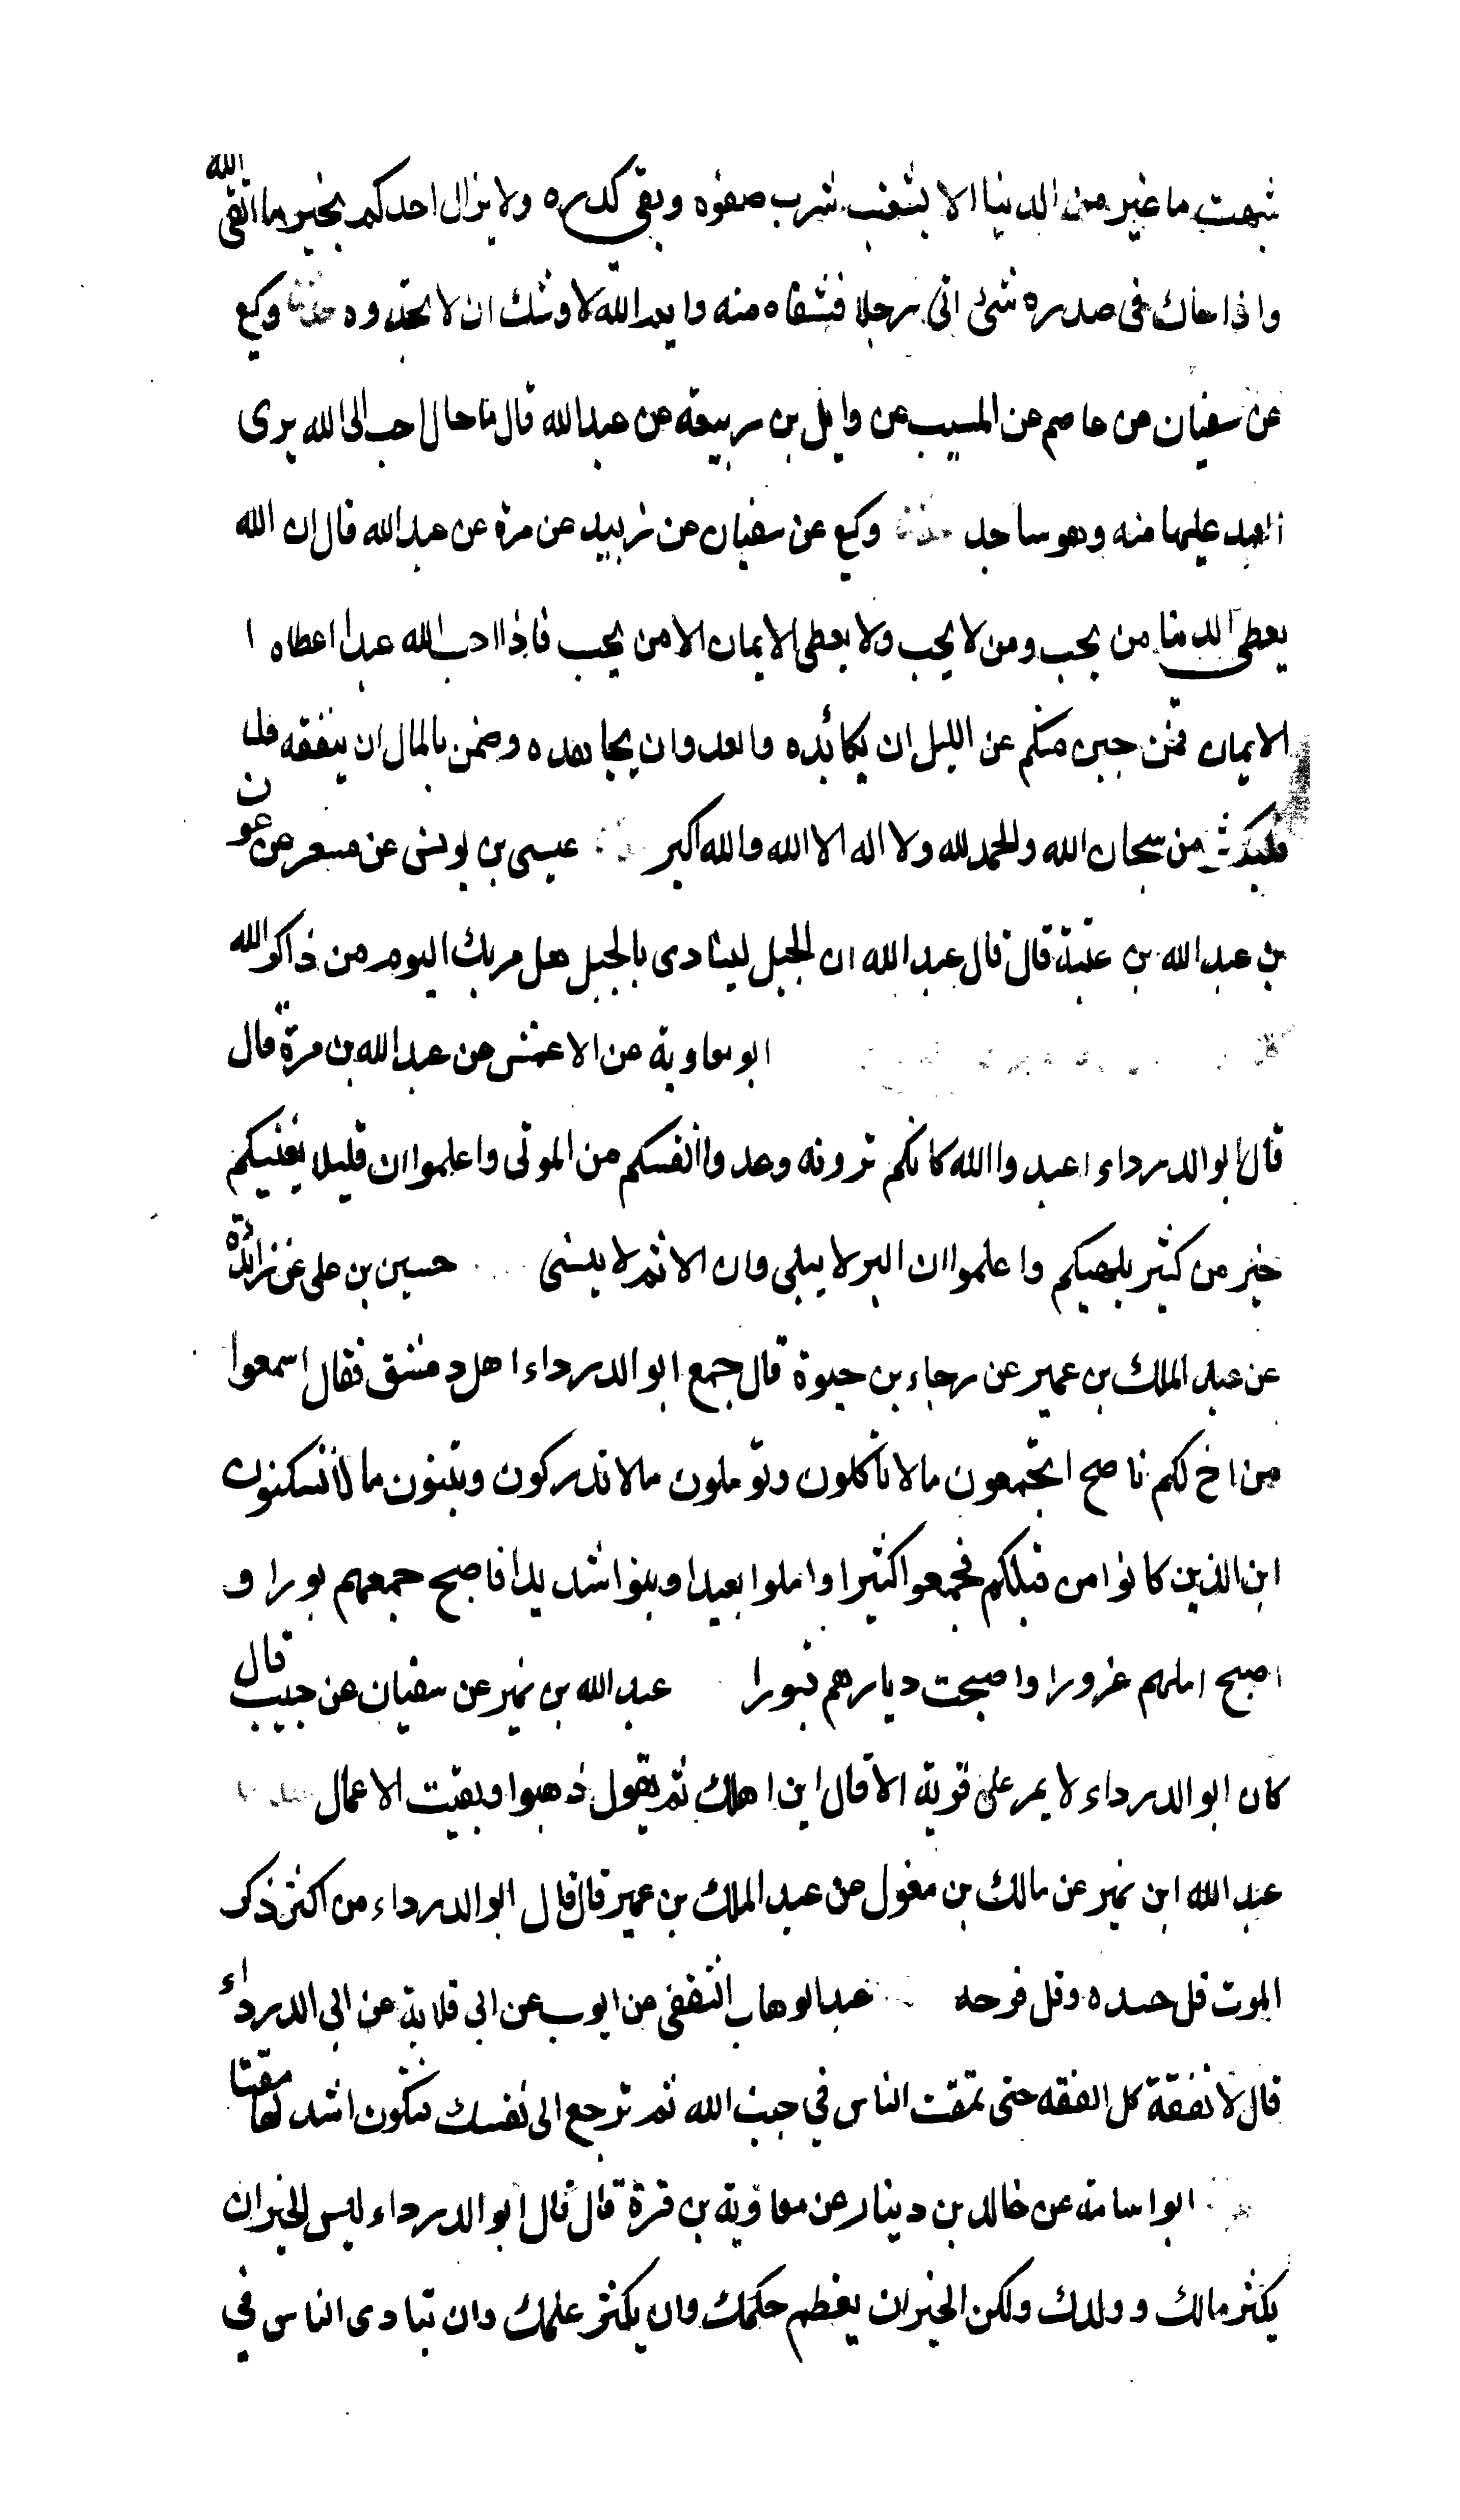 شبهت ما غبر من الدنيا الا بثغب شرب صفوه وبقي كدره ولا يزال احدكم بخير ما اتقى الله
واذا حاك في صدره شئ اتى رجلا فشفاه منه وايم الله لاوشك ان لا تجدوه حدثنا وكيع
عن سفيان عن عاصم عن المسيب عن وايل بن ربيعة عن عبدالله قال ما حال احب الى الله يرى
العبد عليها منه وهو ساجد حدثنا وكيع عن سفيان عن زبيد عن مرة عن عبدالله قال ان الله
يعطي الدنيا من يحب ومن لا يحب ولا يعطي الايمان الا من يحب فاذا احب الله عبدا اعطاه ا
الايمان فمن جبن منكم عن الليل ان يكائده والعدو ان يجاهده وضمن بالمال ان ينفقه فلنا
فليكثر من سبحان الله والحمد لله ولا اله الا الله والله اكبر عيسى بن يونس عن مسعر عن عون
بن عبد الله بن عتبة قال قال عبد الله ان الجبل لينادي بالجبل هل مر بك اليوم من ذاكر الله
ابو معاوية عن الاعمش عن عبد الله بن مرة قال
قال ابو الدرداء اعبدوا الله كانكم ترونه وعدوا انفسكم من الموتى واعلموا ان قليلا يغنيكم
خير من كثير يلهيكم واعلموا ان البر لا يبلى وان الاثم لا ينسى حسين بن علي عن زائدة
عن عبد الملك بن عمير عن رجاء بن حيوة قال جمع ابو الدرداء اهل دمشق فقال اسمعوا
من اخ لكم ناصح اتجمعون مالا تأكلون وتوملون مالا تدركون وتبنون ما لا تسكنون
اين الذين كانوا من قبلكم فجمعوا كثيرا واملوا بعيدا وبنوا شديدا فاصبح جمعهم بورا و
اصبح املهم غرورا واصبحت ديارهم قبورا عبد الله بن نمير عن سفيان عن حبيب قال
كان ابو الدرداء لا يمر على قرية الا قال اين اهلك ثم يقول ذهبوا وبقيت الاعمال حدثنا
عبد الله ابن نمير عن مالك بن مغول عن عبد الملك بن عمير قال قال ابو الدرداء من اكثر ذكر
الموت قل حسده وقل فرحه عبدالوهاب الثقفي عن ايوب عن ابي قلابة عن ابي الدرداء
قال لا تفقة كل الفقه حتى تمقت الناس في جنب الله ثم ترجع الى نفسك فتكون اشد لها مقتا
ابو اسامة عن خالد بن دينار عن معاوية بن قرة قال قال ابو الدرداء ليس الخير ان
يكثر مالك وولدك ولكن الخير ان يعظم حكمك وان يكثر علمك وان تبادى الناس في